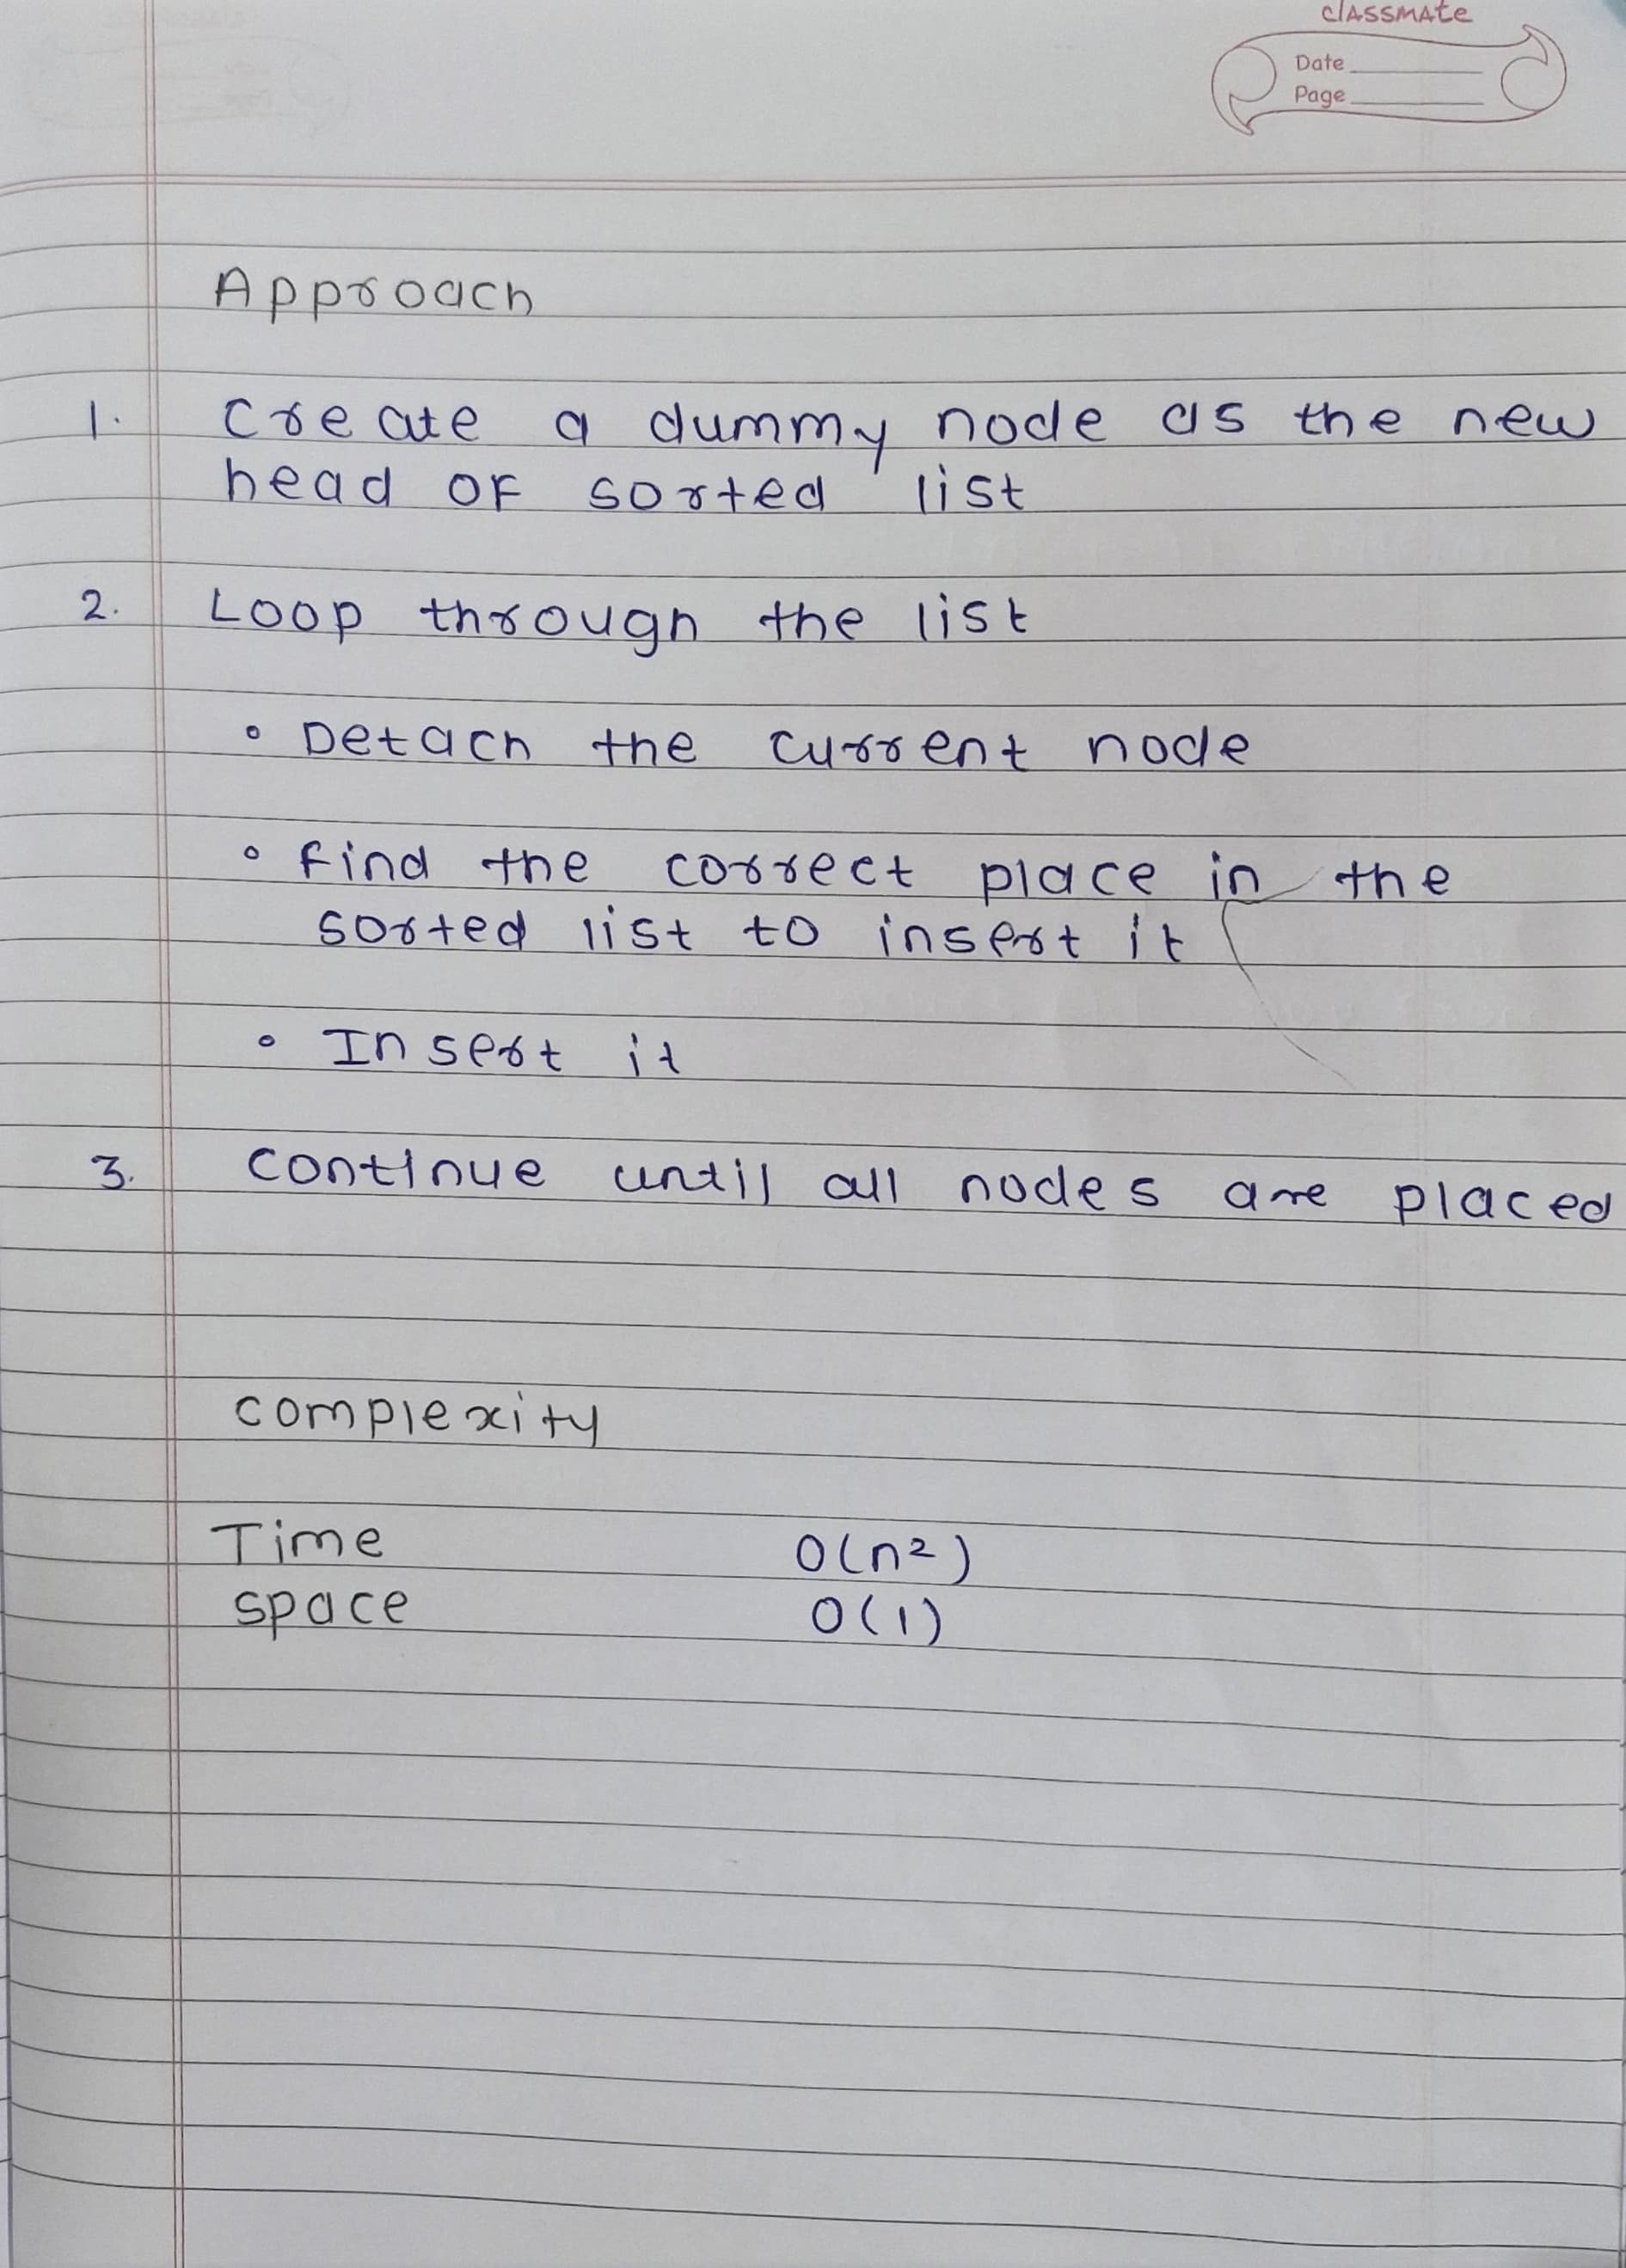 classmate
Date
Page
Approach
1. Create a dummy node as the new
head of sorted list
2. Loop through the list
• Detach the current node
• Find the correct place in the
sorted list to insert it
• Insert it
3. continue until all nodes are placed
complexity
Time O(n²)
space O(1)